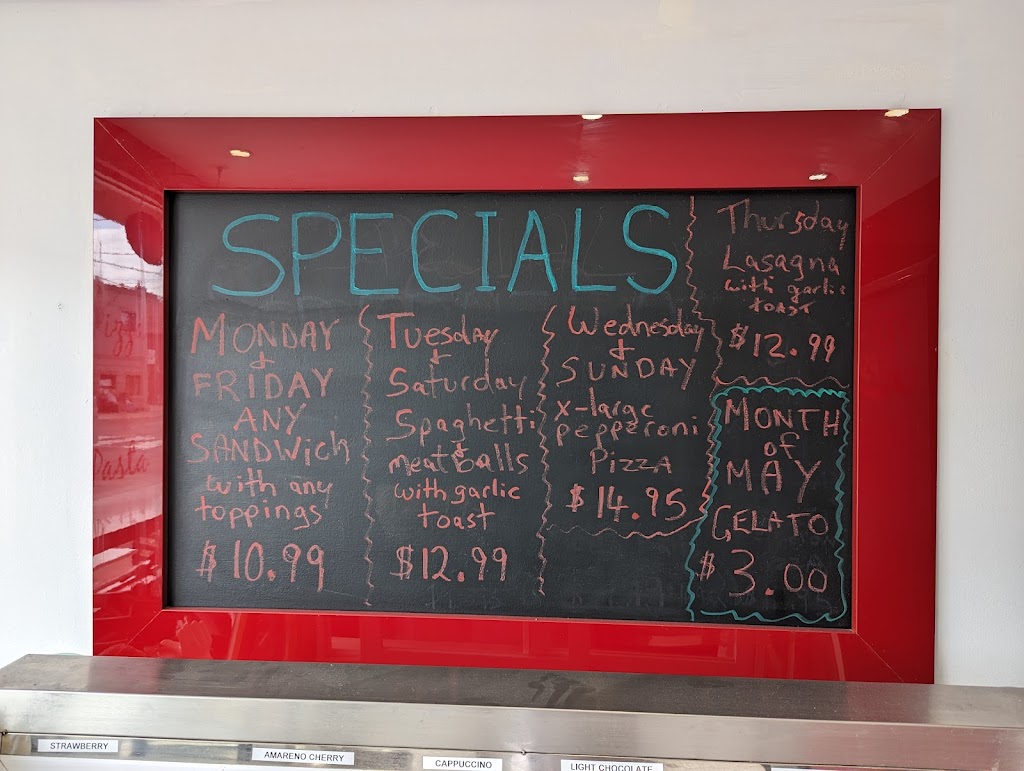 SPECIALS
MONDAY
&
FRIDAY
ANY
SANDWich
with any
toppings
$10.99
Tuesday
&
Saturday
Spaghetti
&
meatballs
with garlic
toast
$12.99
Wednesday
&
SUNDAY
X-large
pepperoni
Pizza
$14.95
Thursday
Lasagna
with garlic
toast
$12.99
MONTH
of
MAY
GELATO
$3.00
Pasta
STRAWBERRY
AMARENO CHERRY
CAPPUCCINO
LIGHT CHOCOLATE